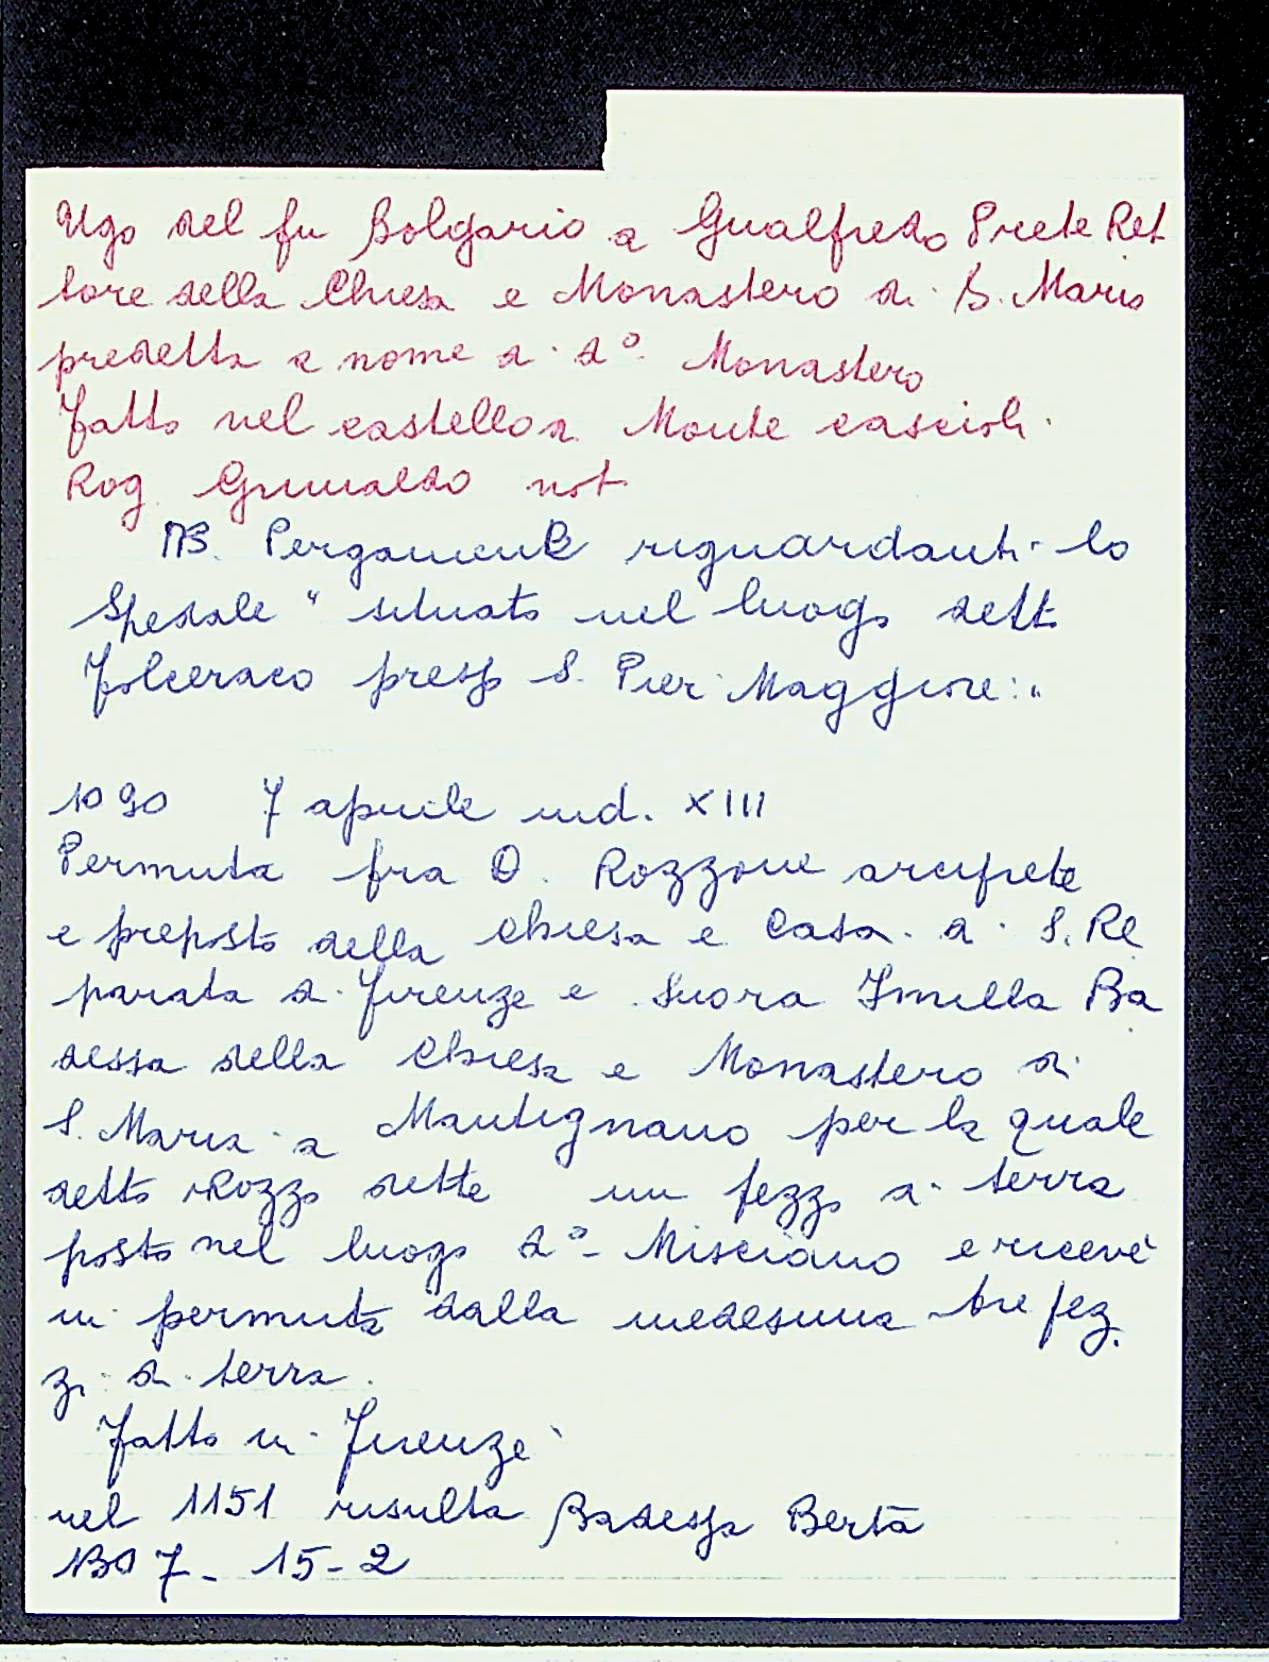 Ugo del fu Bolgario a Gualfredo Prete Ret
tore della Chiesa e Monastero di S. Maria
predetta e nome di do Monastero
Fatto nel castello di Monte cascioli.
Rog. Grimaldo not.
NB. Pergamene riguardanti lo
Spedale " situato nel luogo detto
Folceraco presso S. Pier Maggiore: "
1090 7 aprile ind. XIII
Permuta fra D. Rozzone arciprete
e preposto della Chiesa e Casa di S. Re
parata di Firenze e Suora Imilla Ba
dessa della Chiesa e Monastero di
S. Maria a Mantignano per la quale
detto Rozzo dette un pezzo di terra
posto nel luogo do Misciano e ricevè
in permuta dalla medesima tre pez
zi di terra.
Fatto in Firenze
nel 1151 risulta Badessa Berta
7 - 15 - 2